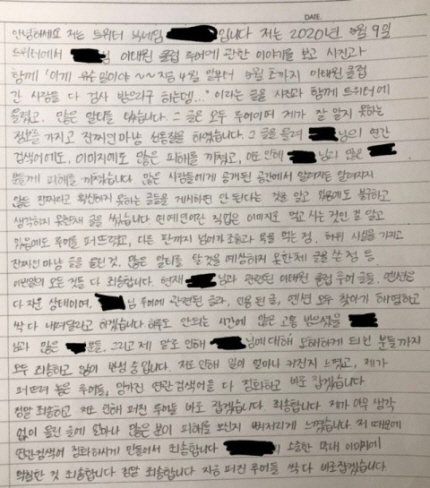 DATE.
안녕하세요 저는 트위터 닉네임 입니다 저는 2020년 5월 9일
트위터에서 님 이태원 클럽 루머에 관한 이야기를 보고 사진과
함께 "이게 무슨 일이야 ~~ 지금 4월 말부터 5월 초까지 이태원 클럽
간 사람들 다 검사 받으라구 하는데..." 이라는 글을 사진과 함께 트위터에
올렸고, 많은 알티를 탔습니다. 그 글은 모두 루머이며 제가 잘 알지 못하는
정보를 가지고 진짜인 마냥 선동질을 하였습니다. 그 글을 올려 님의 연관
검색어에도, 이미지에도 많은 피해를 끼쳤고, 저로 인해 님의 많은
분들께 피해를 끼쳤습니다. 많은 사람들에게 공개된 공간에서 알려지는
않은 진짜라고 확인하지 못하는 글들을 게시하면 안 된다는 것을 알고 있음에도 불구하고
생각하지 못한채 글을 썼습니다. 연예인이란 직업은 이미지로 먹고 사는 것인 걸 알고
있음에도 루머를 퍼뜨렸고, 다른 판까지 넘어가 조롱과 욕을 먹는 점, 허위 사실을 가지고
진짜인 마냥 글을 올린 것, 많은 알티를 탈 것을 예상하지 못한채 글을 쓴 점 등
이 모든 것들 다 죄송합니다. 현재 님과 관련된 이태원 클럽 루머 글들, 멘션은
다 지운 상태이며, 님 루머에 관련된 글과, 인용된 글, 멘션 모두 찾아가 해명하고
싹 다 내려달라고 하겠습니다. 하루도 안되는 시간에 많은 고통 받으셨을
님과 많은 분들, 그리고 제 말로 인해 님에 대해 오해하게 되신 분들까지
모두 죄송하고 많이 반성 중입니다. 저로 인해 일이 얼마나 커진지 느꼈고, 제가
퍼뜨려 놓은 루머들, 망가진 연관검색어를 다 정화하고 바로 잡겠습니다.
정말 죄송하고 저로 인해 퍼진 루머들 바로 잡겠습니다. 죄송합니다. 제가 아무 생각
없이 올린 글에 얼마나 많은 분이 피해를 보신지 뼈저리게 느꼈습니다. 저 때문에
연관검색어 정화하시게 만들어서 죄송합니다 의 소중한 막내 이미지에
먹칠한 것 죄송합니다 정말 죄송합니다 지금 퍼진 루머들 싹 다 바로잡겠습니다.